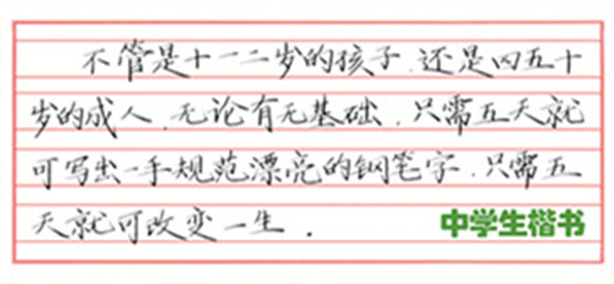 不管是十一二岁的孩子.还是四五十
岁的成人.无论有无基础.只需五天就
可写出一手规范漂亮的钢笔字.只需五
天就可改变一生.
中学生楷书